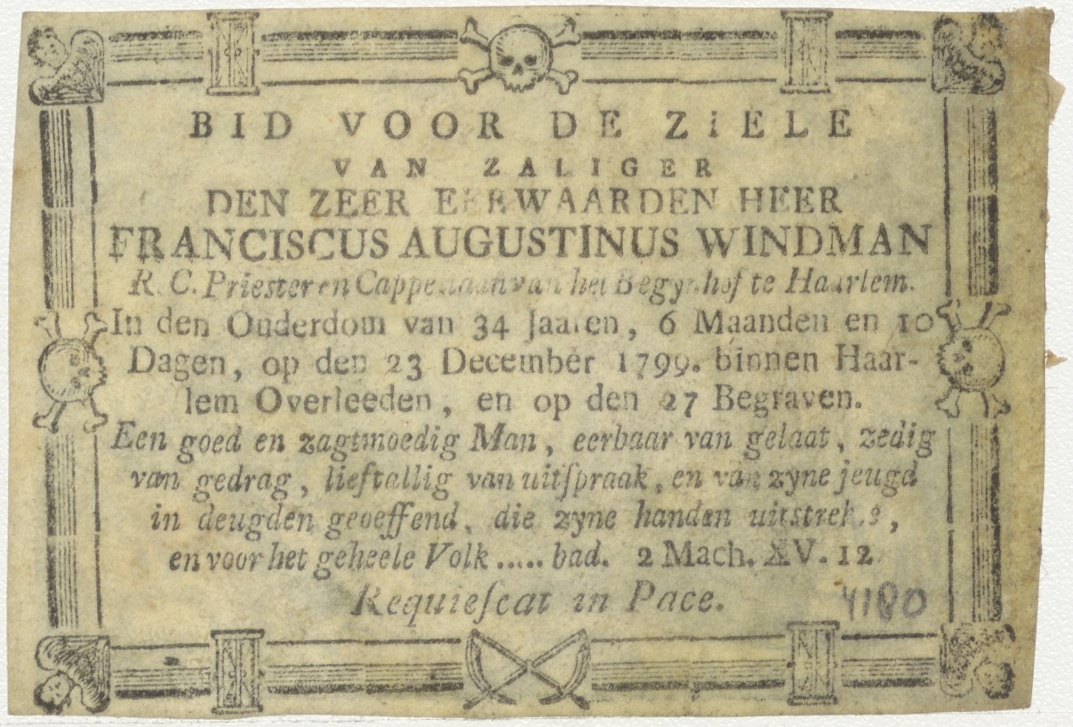 BID VOOR DE ZIELE
VAN ZALIGER
DEN ZEER EERWAARDEN HEER
FRANCISCUS AUGUSTINUS WINDMAN
R. C. Priester en Cappellaan van het Begynhof te Haarlem.
In den Ouderdom van 34 Jaaren, 6 Maanden en 10
Dagen, op den 23 December 1799. binnen Haar-
lem Overleeden, en op den 27 Begraven.
Een goed en zagtmoedig Man, eerbaar van gelaat, zedig
van gedrag, lieftallig van uitſpraak, en van zyne jeugd
in deugden geoeffend, die zyne handen uitstrekte,
en voor het geheele Volk ..... bad. 2 Mach. XV. 12
Requieſcat in Pace.
4180